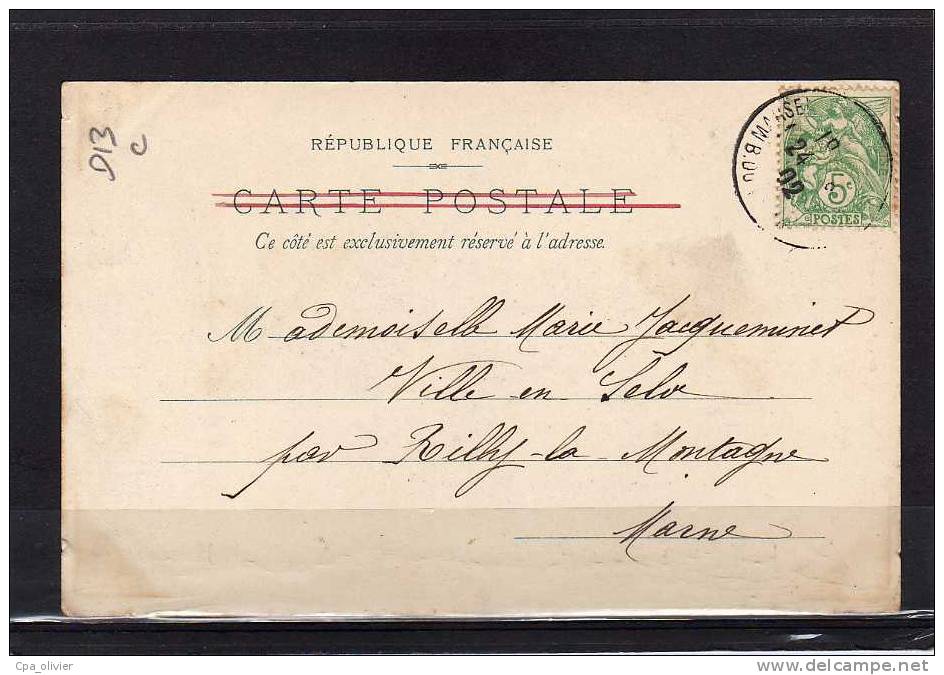 D13
C
RÉPUBLIQUE FRANÇAISE
CARTE POSTALE
Ce côté est exclusivement réservé à l'adresse.
5c
POSTES
24
02
Mademoiselle Marie Jacqueminet
Ville en Selve
par Rilly-la-Montagne
Marne
Cpa_olivier
www.delcampe.net